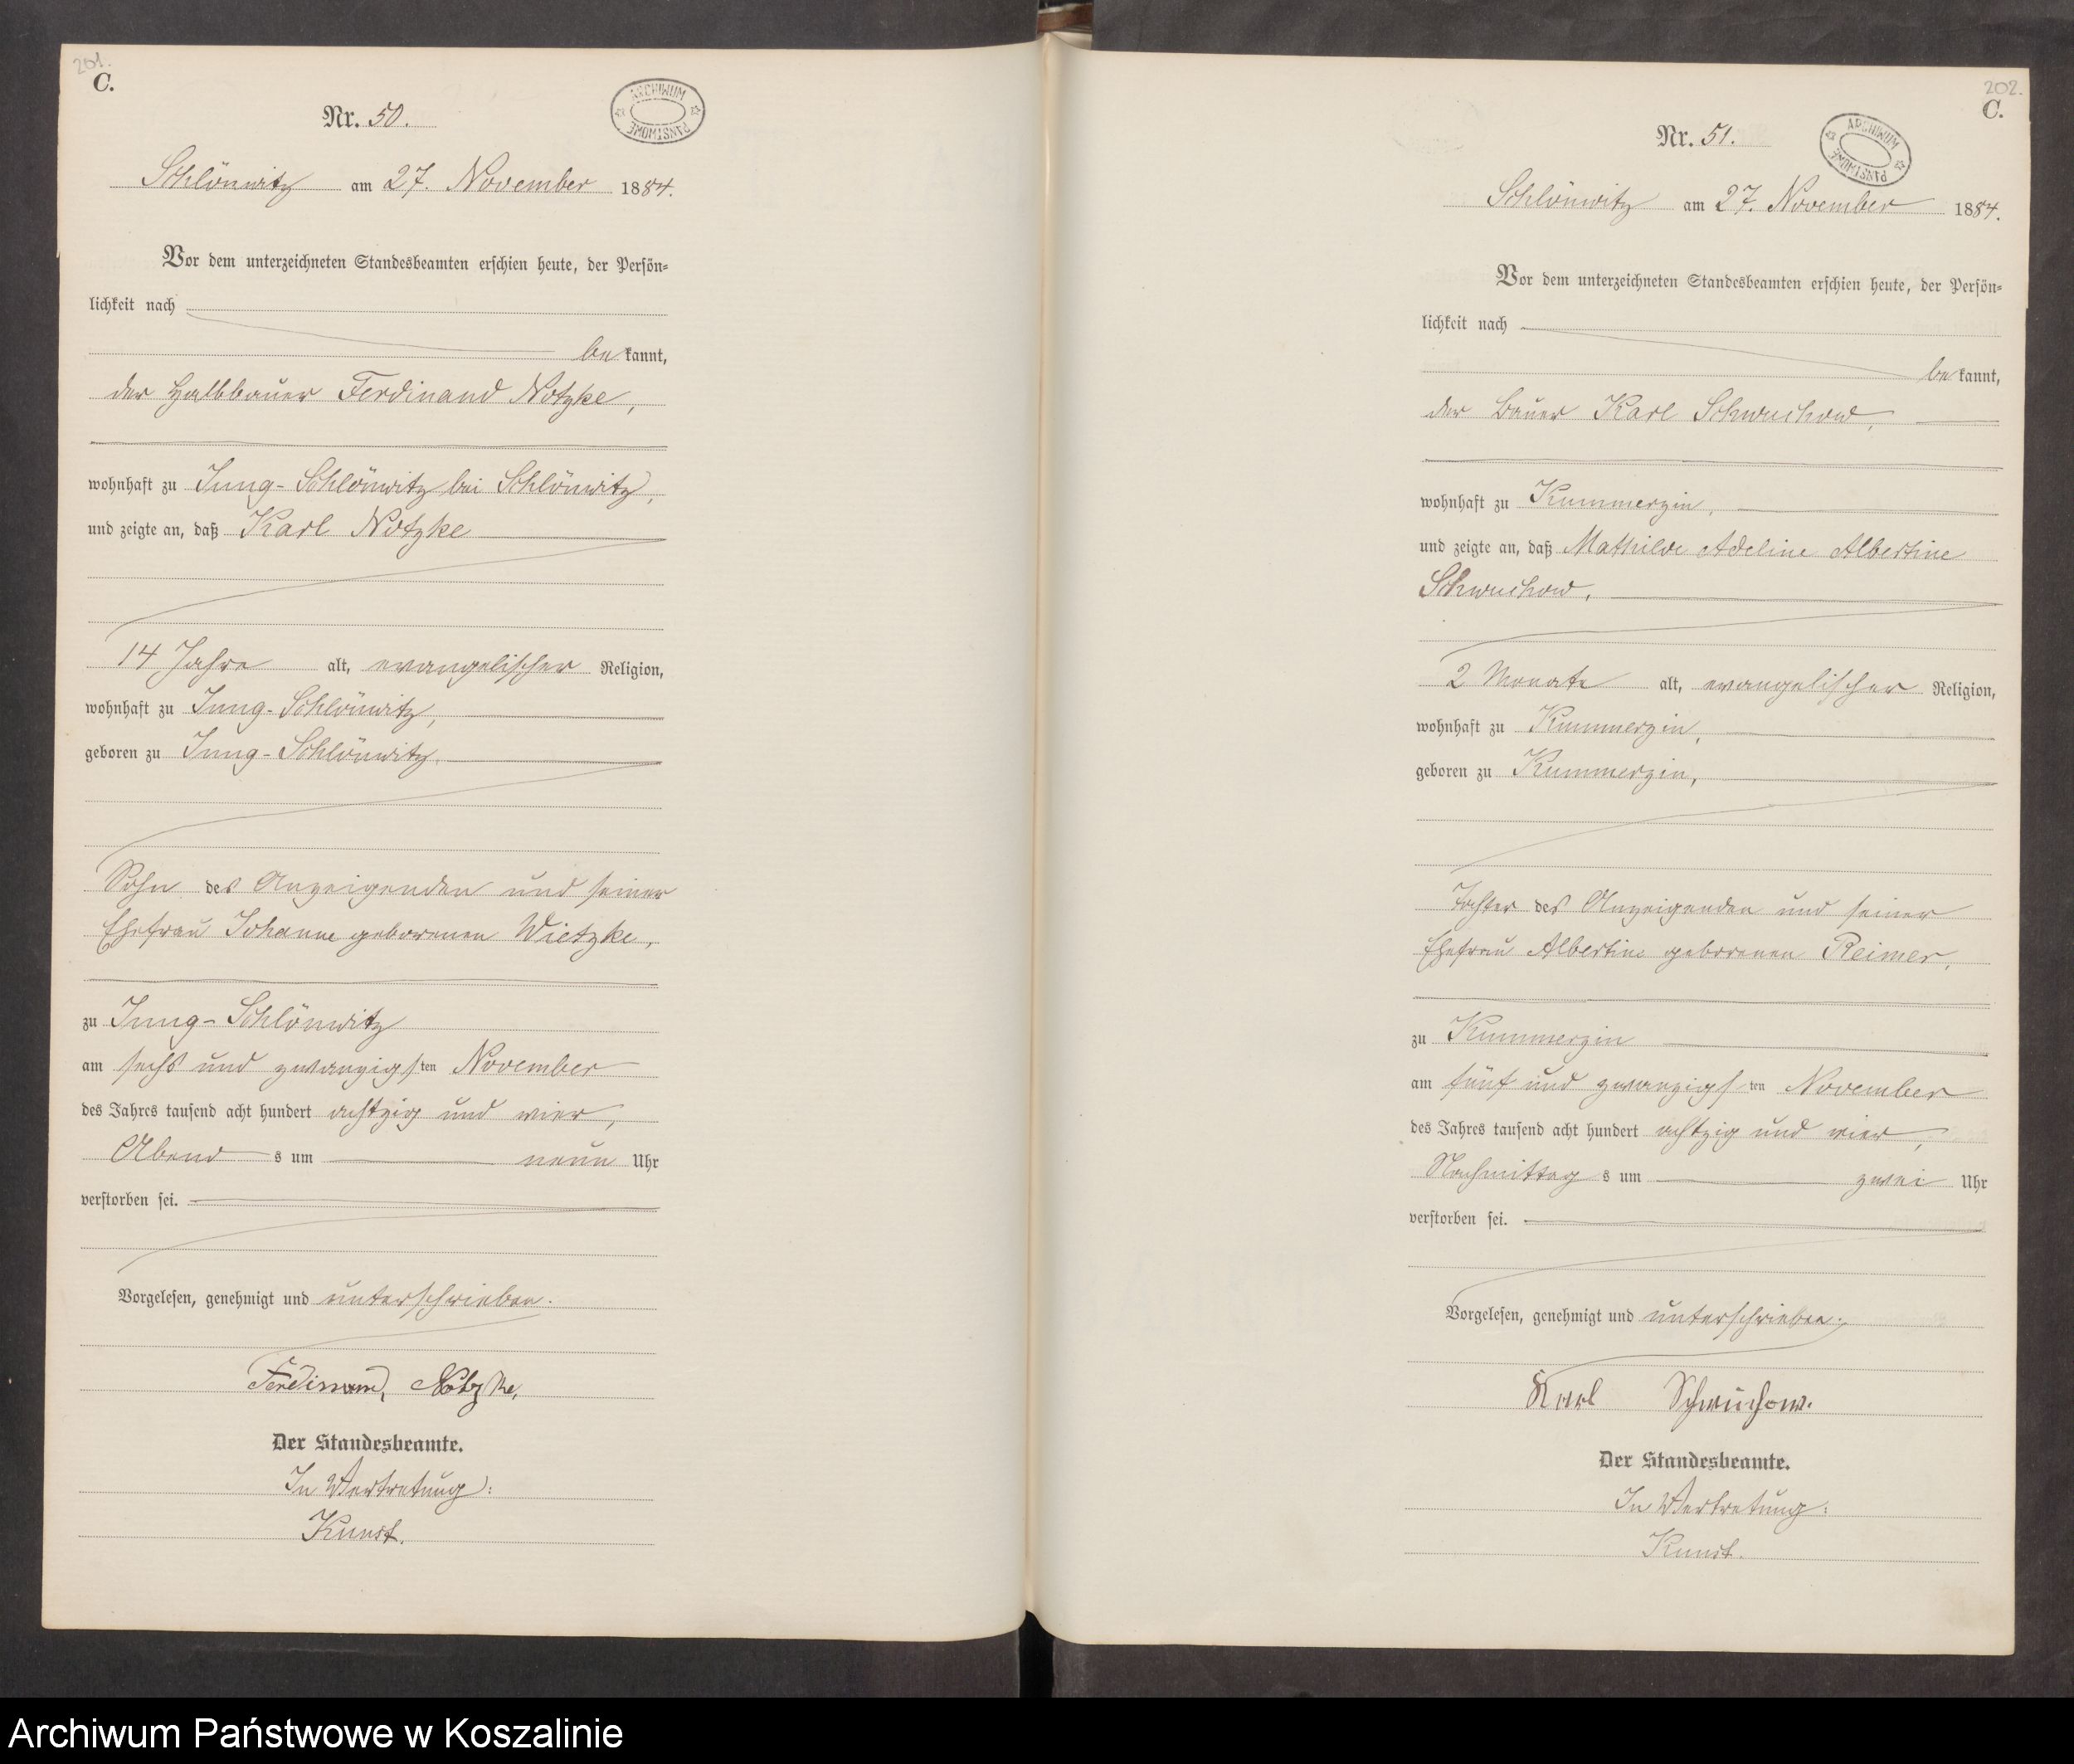 201.
C.
ARCHIWUM PAŃSTWOWE
Nr. 50.
Schlönwitz am 27. November 1884.
Vor dem unterzeichneten Standesbeamten erschien heute, der Persön=
lichkeit nach
be kannt,
der Halbbauer Ferdinand Notzke,
wohnhaft zu Jung-Schlönwitz bei Schlönwitz,
und zeigte an, daß Karl Notzke
14 Jahre alt, evangelischer Religion,
wohnhaft zu Jung-Schlönwitz,
geboren zu Jung-Schlönwitz,
Sohn des Anzeigenden und seiner
Ehefrau Johanne geborenen Wietzke,
zu Jung-Schlönwitz
am sechs und zwanzigsten November
des Jahres tausend acht hundert achtzig und vier,
Abend s um neun Uhr
verstorben sei.
Vorgelesen, genehmigt und unterschrieben.
Ferdinand, Notzke,
Der Standesbeamte.
In Vertretung:
Kunst.
202.
C.
ARCHIWUM PAŃSTWOWE
Nr. 51.
Schlönwitz am 27. November 1884.
Vor dem unterzeichneten Standesbeamten erschien heute, der Persön=
lichkeit nach
be kannt,
der Bauer Karl Schwuchow,
wohnhaft zu Kummerzin,
und zeigte an, daß Mathilde Adeline Albertine
Schwuchow,
2 Monate alt, evangelischer Religion,
wohnhaft zu Kummerzin,
geboren zu Kummerzin,
Tochter des Anzeigenden und seiner
Ehefrau Albertine geborenen Reimer,
zu Kummerzin
am fünf und zwanzigsten November
des Jahres tausend acht hundert achtzig und vier,
Nachmittag s um zwei Uhr
verstorben sei.
Vorgelesen, genehmigt und unterschrieben.
Karl Schwuchow.
Der Standesbeamte.
In Vertretung:
Kunst.
Archiwum Państwowe w Koszalinie